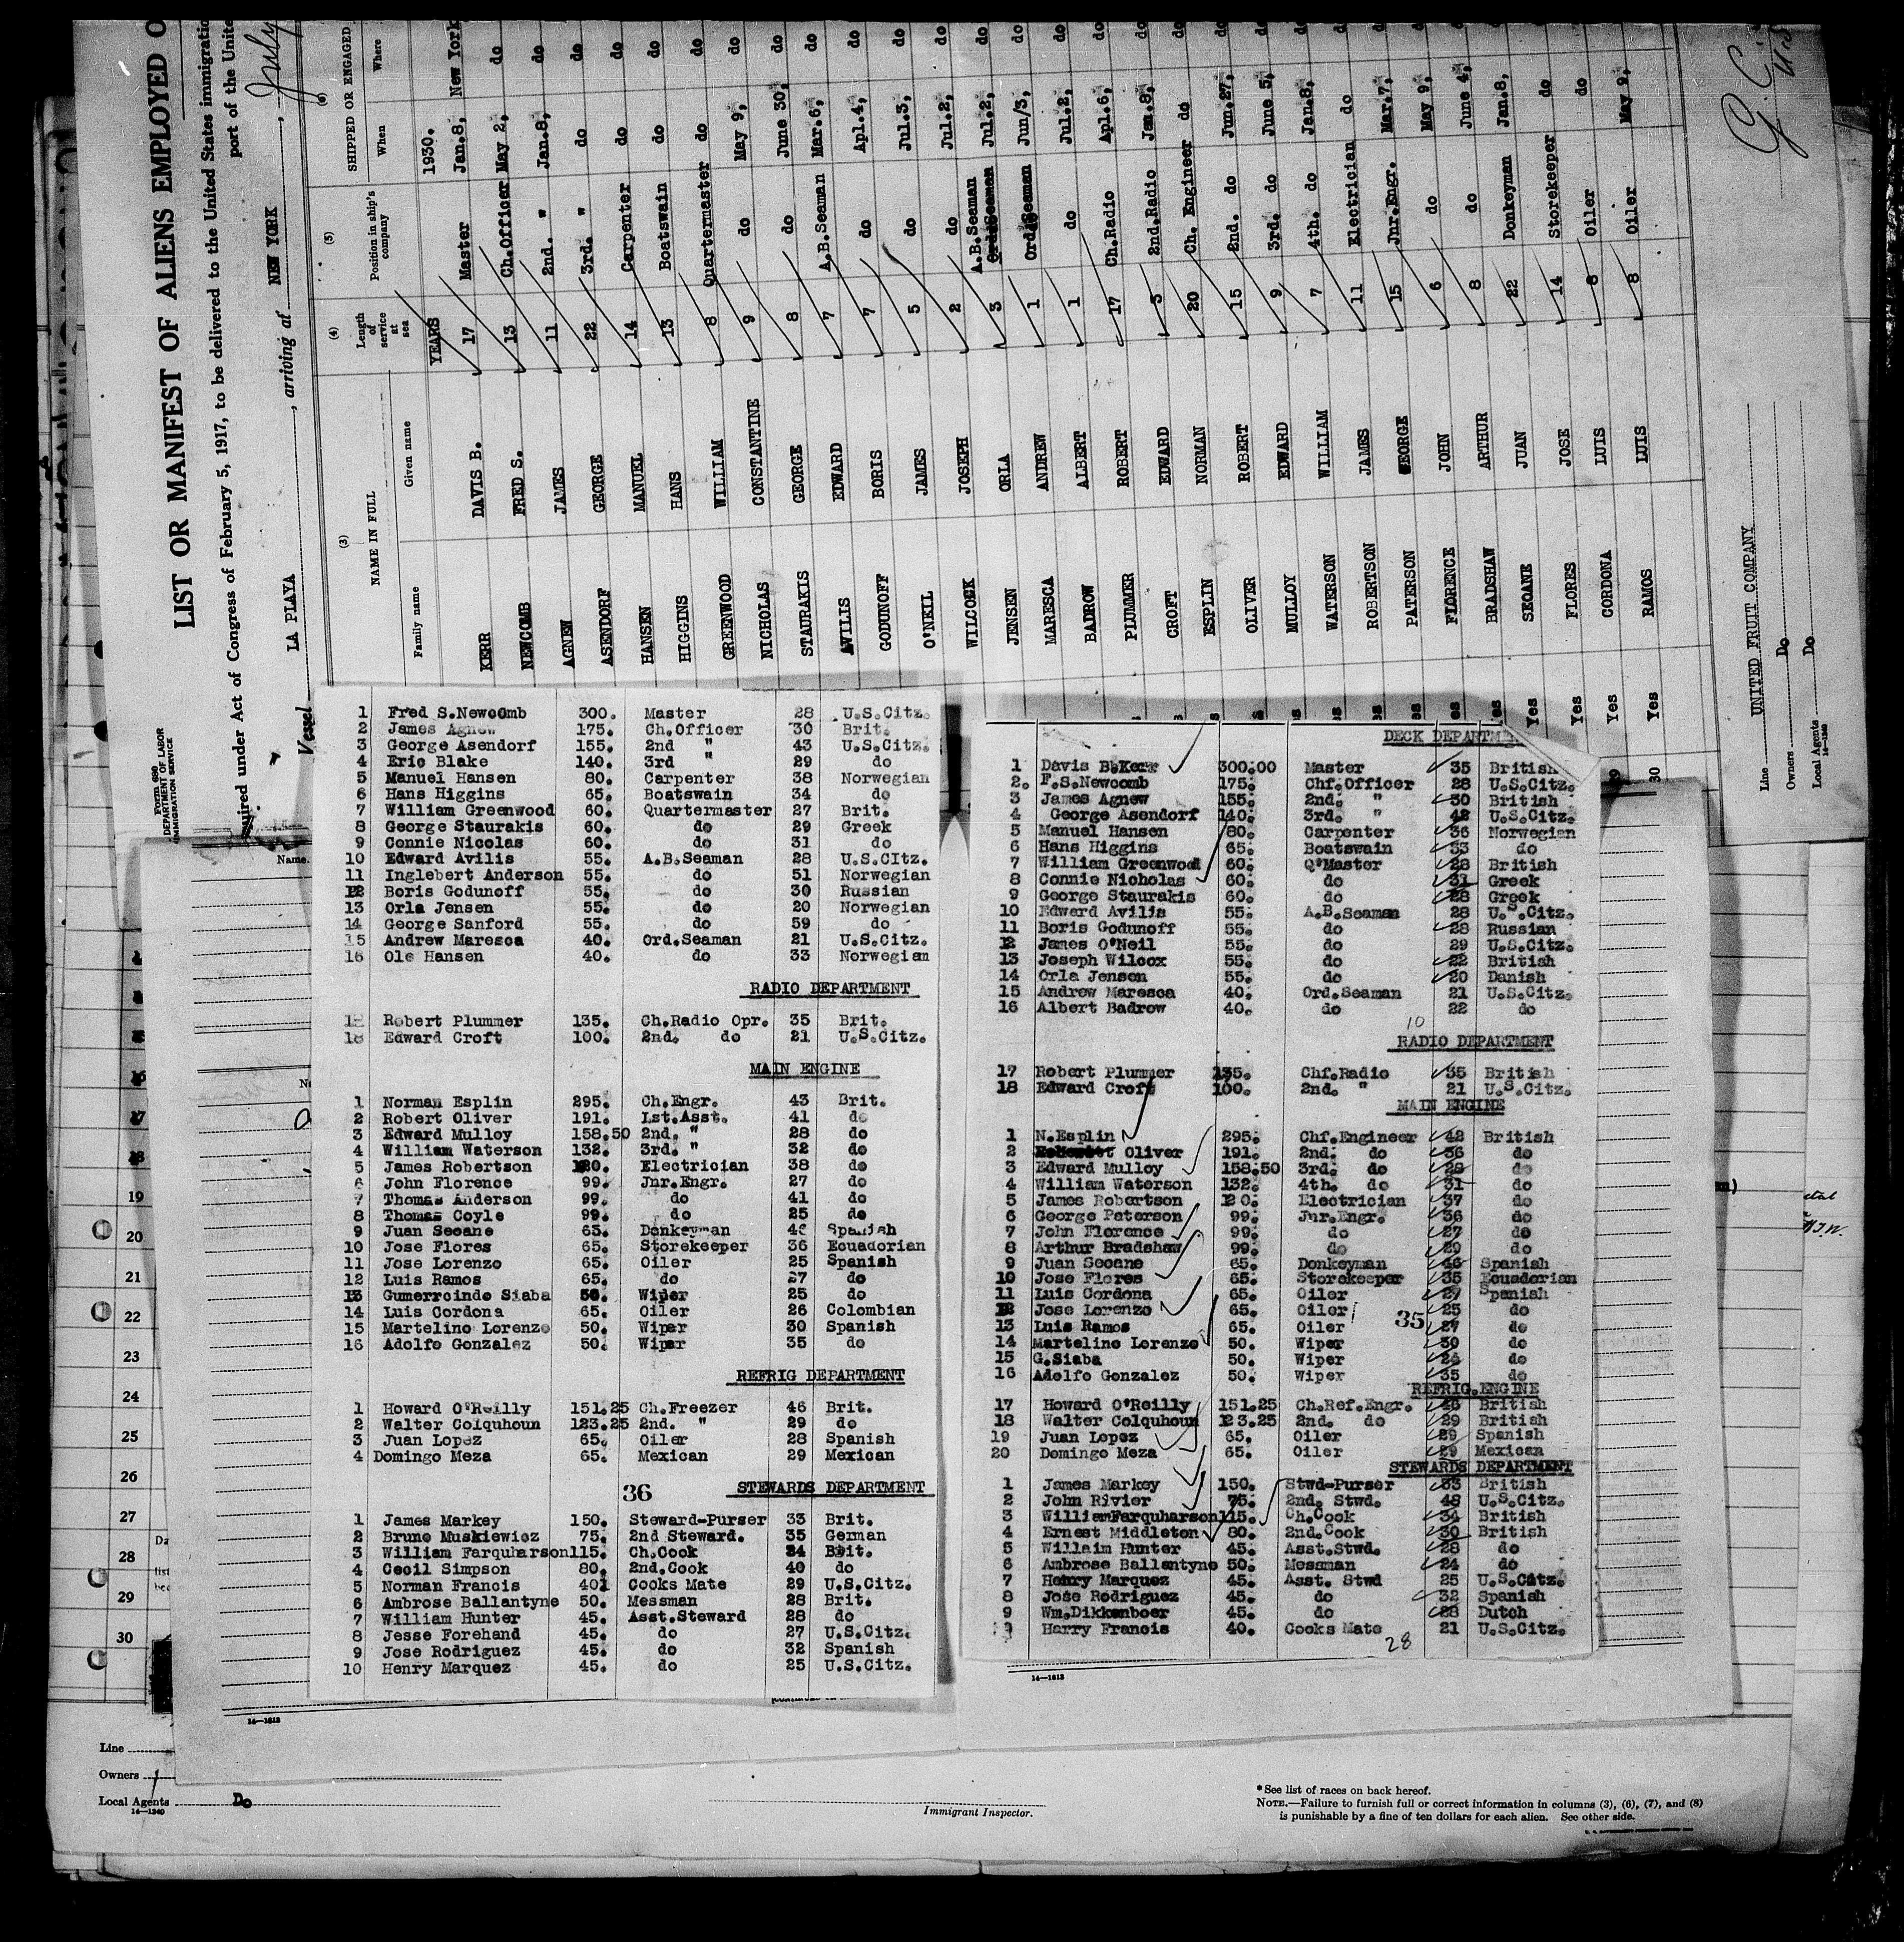 Form 689
DEPARTMENT OF LABOR
IMMIGRATION SERVICE
LIST OR MANIFEST OF ALIENS EMPLOYED O
uired under Act of Congress of February 5, 1917, to be delivered to the United States immigratio
port of the Unite
Vessel LA PLAYA, arriving at NEW YORK, July
(3) (4) (5) (6)
NAME IN FULL Length of service at sea Position in ship's company SHIPPED OR ENGAGED
Family name Given name When Where
YEARS 1930.
KERR DAVIS B. 17 Master Jan.8, New York
NEWCOMB FRED S. 13 Ch.Officer May 2, do
AGNEW JAMES 11 2nd. " Jan.8, do
ASENDORF GEORGE 22 3rd. " do do
HANSEN MANUEL 14 Carpenter do do
HIGGINS HANS 13 Boatswain do do
GREENWOOD WILLIAM 8 Quartermaster do do
NICHOLAS CONSTANTINE 9 do May 9, do
STAURAKIS GEORGE 8 do June 30, do
AVILIS EDWARD 7 A.B.Seaman Mar.6, do
GODUNOFF BORIS 7 do Apl.4, do
O'NEIL JAMES 5 do Jul.3, do
WILCOCK JOSEPH 2 do Jul.2, do
JENSEN ORLA 3 A.B.Seaman Jul.2, do
MARESCA ANDREW 1 Ord.Seaman Jun/3, do
BADROW ALBERT 1 do Jul.2, do
PLUMMER ROBERT 17 Ch.Radio Apl.6, do
CROFT EDWARD 3 2nd.Radio Jan.8, do
ESPLIN NORMAN 20 Ch. Engineer do do
OLIVER ROBERT 15 2nd. do Jun.27, do
MULLOY EDWARD 9 3rd. do June 5, do
WATERSON WILLIAM 7 4th. do Jan.8, do
ROBERTSON JAMES 11 Electrician do do
PATERSON GEORGE 15 Jnr.Engr. Mar.7, do
FLORENCE JOHN 6 do May 9, do
BRADSHAW ARTHUR 8 do June 4, do
SEOANE JUAN 22 Donkeyman Jan.8, do
FLORES JOSE 14 Storekeeper do
CORDONA LUIS 8 Oiler do
RAMOS LUIS 8 Oiler May 9,
Yes
Yes
Yes
Yes
Line UNITED FRUIT COMPANY
Owners Do
Local Agents Do
14—1240
1 Fred S.Newcomb 300. Master 28 U.S.Citz.
2 James Agnew 175. Ch.Officer 30 Brit.
3 George Asendorf 155. 2nd " 43 U.S.Citz.
4 Eric Blake 140. 3rd " 29 do
5 Manuel Hansen 80. Carpenter 38 Norwegian
6 Hans Higgins 65. Boatswain 34 do
7 William Greenwood 60. Quartermaster 27 Brit.
8 George Staurakis 60. do 29 Greek
9 Connie Nicolas 60. do 31 do
10 Edward Avilis 55. A.B.Seaman 28 U.S.CItz.
11 Inglebert Anderson 55. do 51 Norwegian
12 Boris Godunoff 55. do 30 Russian
13 Orla Jensen 55. do 20 Norwegian
14 George Sanford 55. do 59 do
15 Andrew Maresca 40. Ord.Seaman 21 U.S.Citz.
16 Ole Hansen 40. do 33 Norwegian
RADIO DEPARTMENT
Robert Plummer 135. Ch.Radio Opr. 35 Brit.
18 Edward Croft 100. 2nd. do 21 U.S.Citz.
MAIN ENGINE
1 Norman Esplin 295. Ch.Engr. 43 Brit.
2 Robert Oliver 191. Lst.Asst. 41 do
3 Edward Mulloy 158.50 2nd. " 28 do
4 William Waterson 132. 3rd. " 32 do
5 James Robertson 120. Electrician 38 do
6 John Florence 99. Jnr.Engr. 27 do
7 Thomas Anderson 99. do 41 do
8 Thomas Coyle 99. do 25 do
9 Juan Seoane 65. Donkeyman 46 Spanish
10 Jose Flores 65. Storekeeper 36 Ecuadorian
11 Jose Lorenzo 65. Oiler 25 Spanish
12 Luis Ramos 65. do 27 do
13 Gumerroindo Siaba 50. Wiper 25 do
14 Luis Cordona 65. Oiler 26 Colombian
15 Martelino Lorenzo 50. Wiper 30 Spanish
16 Adolfo Gonzalez 50. Wiper 35 do
REFRIG DEPARTMENT
1 Howard O'Reilly 151.25 Ch.Freezer 46 Brit.
2 Walter Colquhoun 123.25 2nd. " 29 do
3 Juan Lopez 65. Oiler 28 Spanish
4 Domingo Meza 65. Mexican 29 Mexican
36 STEWARDS DEPARTMENT
1 James Markey 150. Steward-Purser 33 Brit.
2 Bruno Muskiewicz 75. 2nd Steward. 35 German
3 William Farquharson 115. Ch.Cook 34 Brit.
4 Cecil Simpson 80. 2nd.Cook 40 do
5 Norman Francis 40. Cooks Mate 29 U.S.Citz.
6 Ambrose Ballantyne 50. Messman 28 Brit.
7 William Hunter 45. Asst.Steward 28 do
8 Jesse Forehand 45. do 27 U.S.Citz.
9 Jose Rodriguez 45. do 32 Spanish
10 Henry Marquez 45. do 25 U.S.Citz.
DECK DEPARTM
1 Davis B.Kerr 300.00 Master 35 British
2. F.S.Newcomb 175. Chf.Officer 28 U.S.Citz.
3 James Agnew 155. 2nd. " 30 British
4 George Asendorf 140. 3rd. " 42 U.S.Citz.
5 Manuel Hansen 80. Carpenter 36 Norwegian
6 Hans Higgins 65. Boatswain 33 do
7 William Greenwood 60. Q'Master 28 British
8 Connie Nicholas 60. do 31 Greek
9 George Staurakis 60. do 28 Greek
10 Edward Avilis 55. A.B.Seaman 28 U.S.Citz.
11 Boris Godunoff 55. do 28 Russian
12 James O'Neil 55. do 29 U.S.Citz.
13 Joseph Wilcox 55. do 22 British
14 Orla Jensen 55. do 20 Danish
15 Andrew Maresca 40. Ord.Seaman 21 U.S.Citz.
16 Albert Badrow 40. do 22 do
10
RADIO DEPARTMENT
17 Robert Plummer 135. Chf.Radio 35 British
18 Edward Croft 100. 2nd. " 21 U.S.Citz.
MAIN ENGINE
1 N.Esplin 295. Chf.Engineer 42 British
2 Oliver 191. 2nd. do 36 do
3 Edward Mulloy 158.50 3rd. do 28 do
4 William Waterson 132. 4th. do 31 do
5 James Robertson 120. Electrician 37 do
6 George Paterson 99. Jnr.Engr. 36 do
7 John Florence 99. do 27 do
8 Arthur Bradshaw 99. do 29 do
9 Juan Seoane 65. Donkeyman 46 Spanish
10 Jose Flores 65. Storekeeper 35 Ecuadorian
11 Luis Cordona 65. Oiler 27 Spanish
12 Jose Lorenzo 65. Oiler 25 do
35
13 Luis Ramos 65. Oiler 27 do
14 Martelino Lorenzo 50. Wiper 30 do
15 G.Siaba 50. Wiper 24 do
16 Adolfo Gonzalez 50. Wiper 35 do
REFRIG.ENGINE
17 Howard O'Reilly 151.25 Ch.Ref.Engr. 46 British
18 Walter Colquhoun 123.25 2nd. do 29 British
19 Juan Lopez 65. Oiler 29 Spanish
20 Domingo Meza 65. Oiler 29 Mexican
STEWARDS DEPARTMENT
1 James Markey 150. Stwd-Purser 33 British
2 John Rivier 75. 2nd. Stwd. 48 U.S.Citz.
3 WilliamFarquharson 115. Ch.Cook 34 British
4 Ernest Middleton 80. 2nd.Cook 30 British
5 Willaim Hunter 45. Asst.Stwd. 28 do
6 Ambrose Ballantyne 50. Messman 24 do
7 Henry Marquez 45. Asst. Stwd 25 U.S.Citz.
8 Jose Rodriguez 45. do 32 Spanish
9 Wm.Dikkenboer 45. do 28 Dutch
Harry Francis 40. Cooks Mate 21 U.S.Citz.
28
14—1613
14—1613
Name.
17
19
20
21
22
23
24
25
26
27
28
29
30
Line
Owners
Local Agents Do
14—1240
Immigrant Inspector.
*See list of races on back hereof.
NOTE.—Failure to furnish full or correct information in columns (3), (6), (7), and (8)
is punishable by a fine of ten dollars for each alien. See other side.